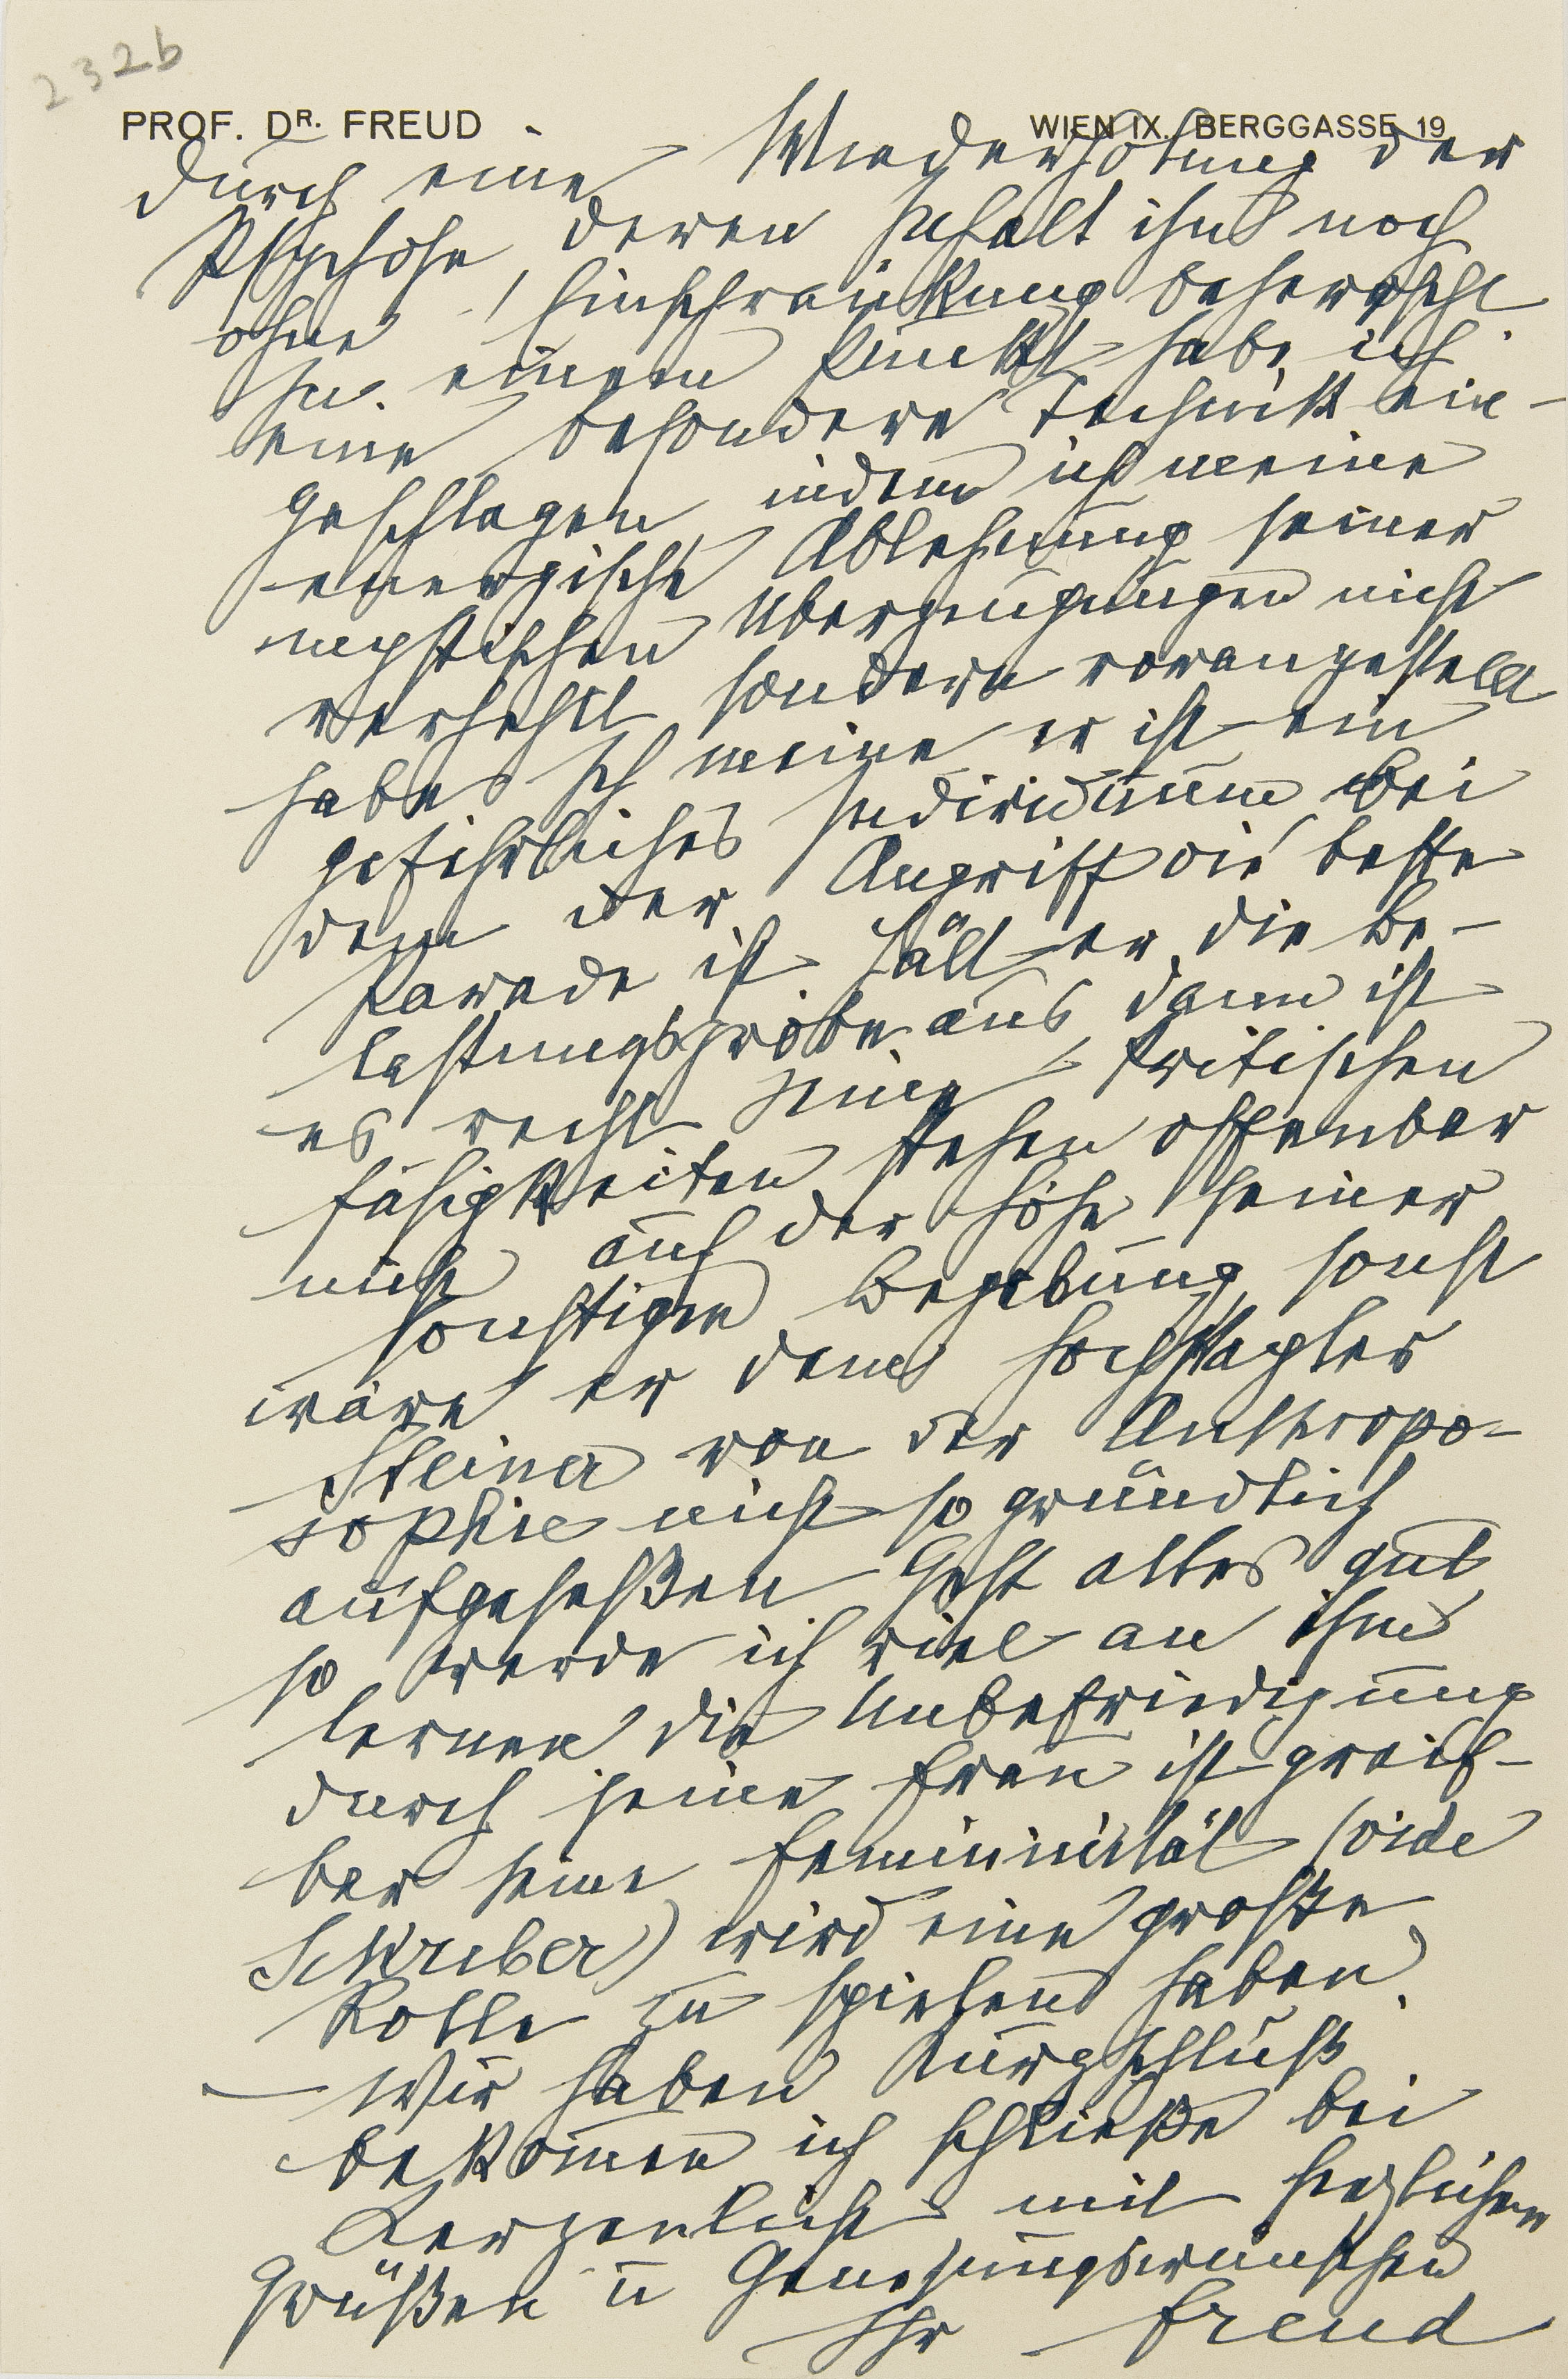 232b
PROF. DR. FREUD WIEN IX., BERGGASSE 19
durch eine Wiederholung der
Psychose, deren Inhalt ihn noch
ohne Einschränkung beherrscht.
In einem Punkt habe ich
eine besondere Technik ein-
geschlagen, indem ich meine
energische Ablehnung seiner
mystischen Überzeugungen nicht
verhehlt sondern vorangestellt
habe. Ich meine er ist ein
gefährliches Individuum bei
dem der Angriff die beste
Parade ist. Hält er die Be-
lastungsprobe aus, dann ist
es recht. Seine kritischen
Fähigkeiten stehen offenbar
nicht auf der Höhe seiner
sonstigen Begabung, sonst
wäre er dem Hochstapler
Steiner von der Anthropo-
sophie nicht so gründlich
aufgesessen. Geht alles gut
so werde ich viel an ihm
lernen die Unbefriedigung
durch seine Frau ist greif-
bar seine Femininität (vide
Schreber) wird eine große
Rolle zu spielen haben.
— Wir haben Kurzschluß
bekommen ich schließe bei
Kerzenlicht mit herzlichen
Grüßen u Genesungswünschen
Ihr Freud